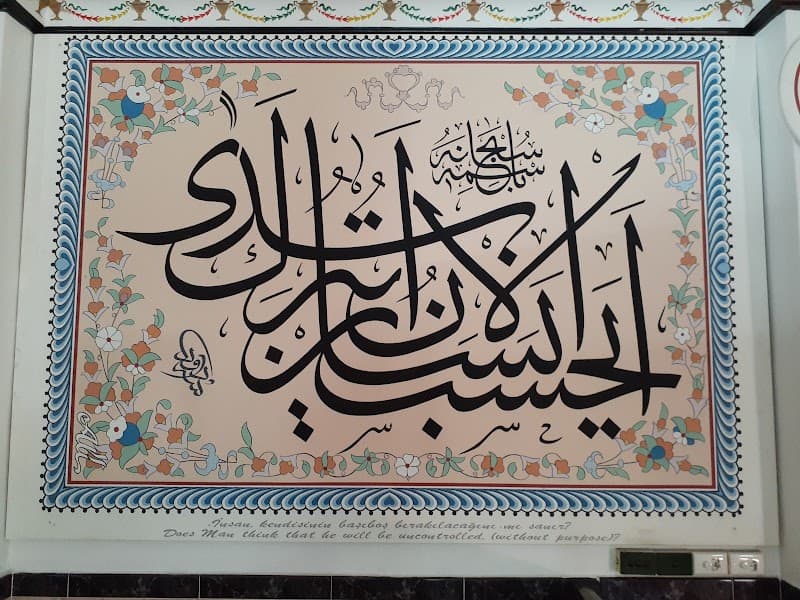 باسمه سبحانه
أيحسب الإنسان أن يترك سدى
İnsan, kendisinin başıboş bırakılacağını mı sanır?
Does Man think that he will be uncontrolled, (without purpose)?